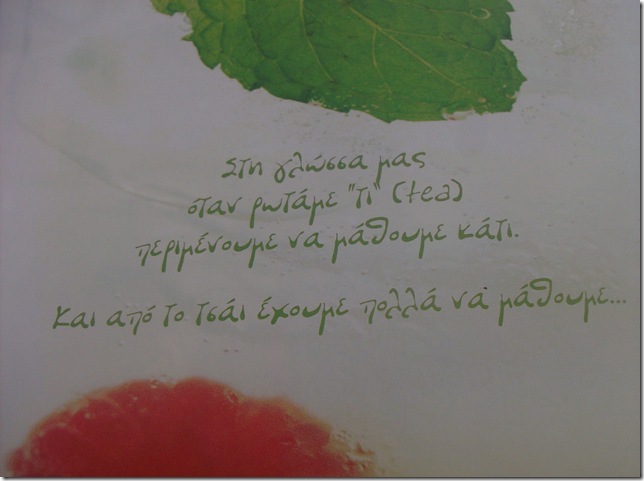 Στη γλώσσα μας
όταν ρωτάμε "τι" (tea)
περιμένουμε να μάθουμε κάτι.
Και από το τσάι έχουμε πολλά να μάθουμε...